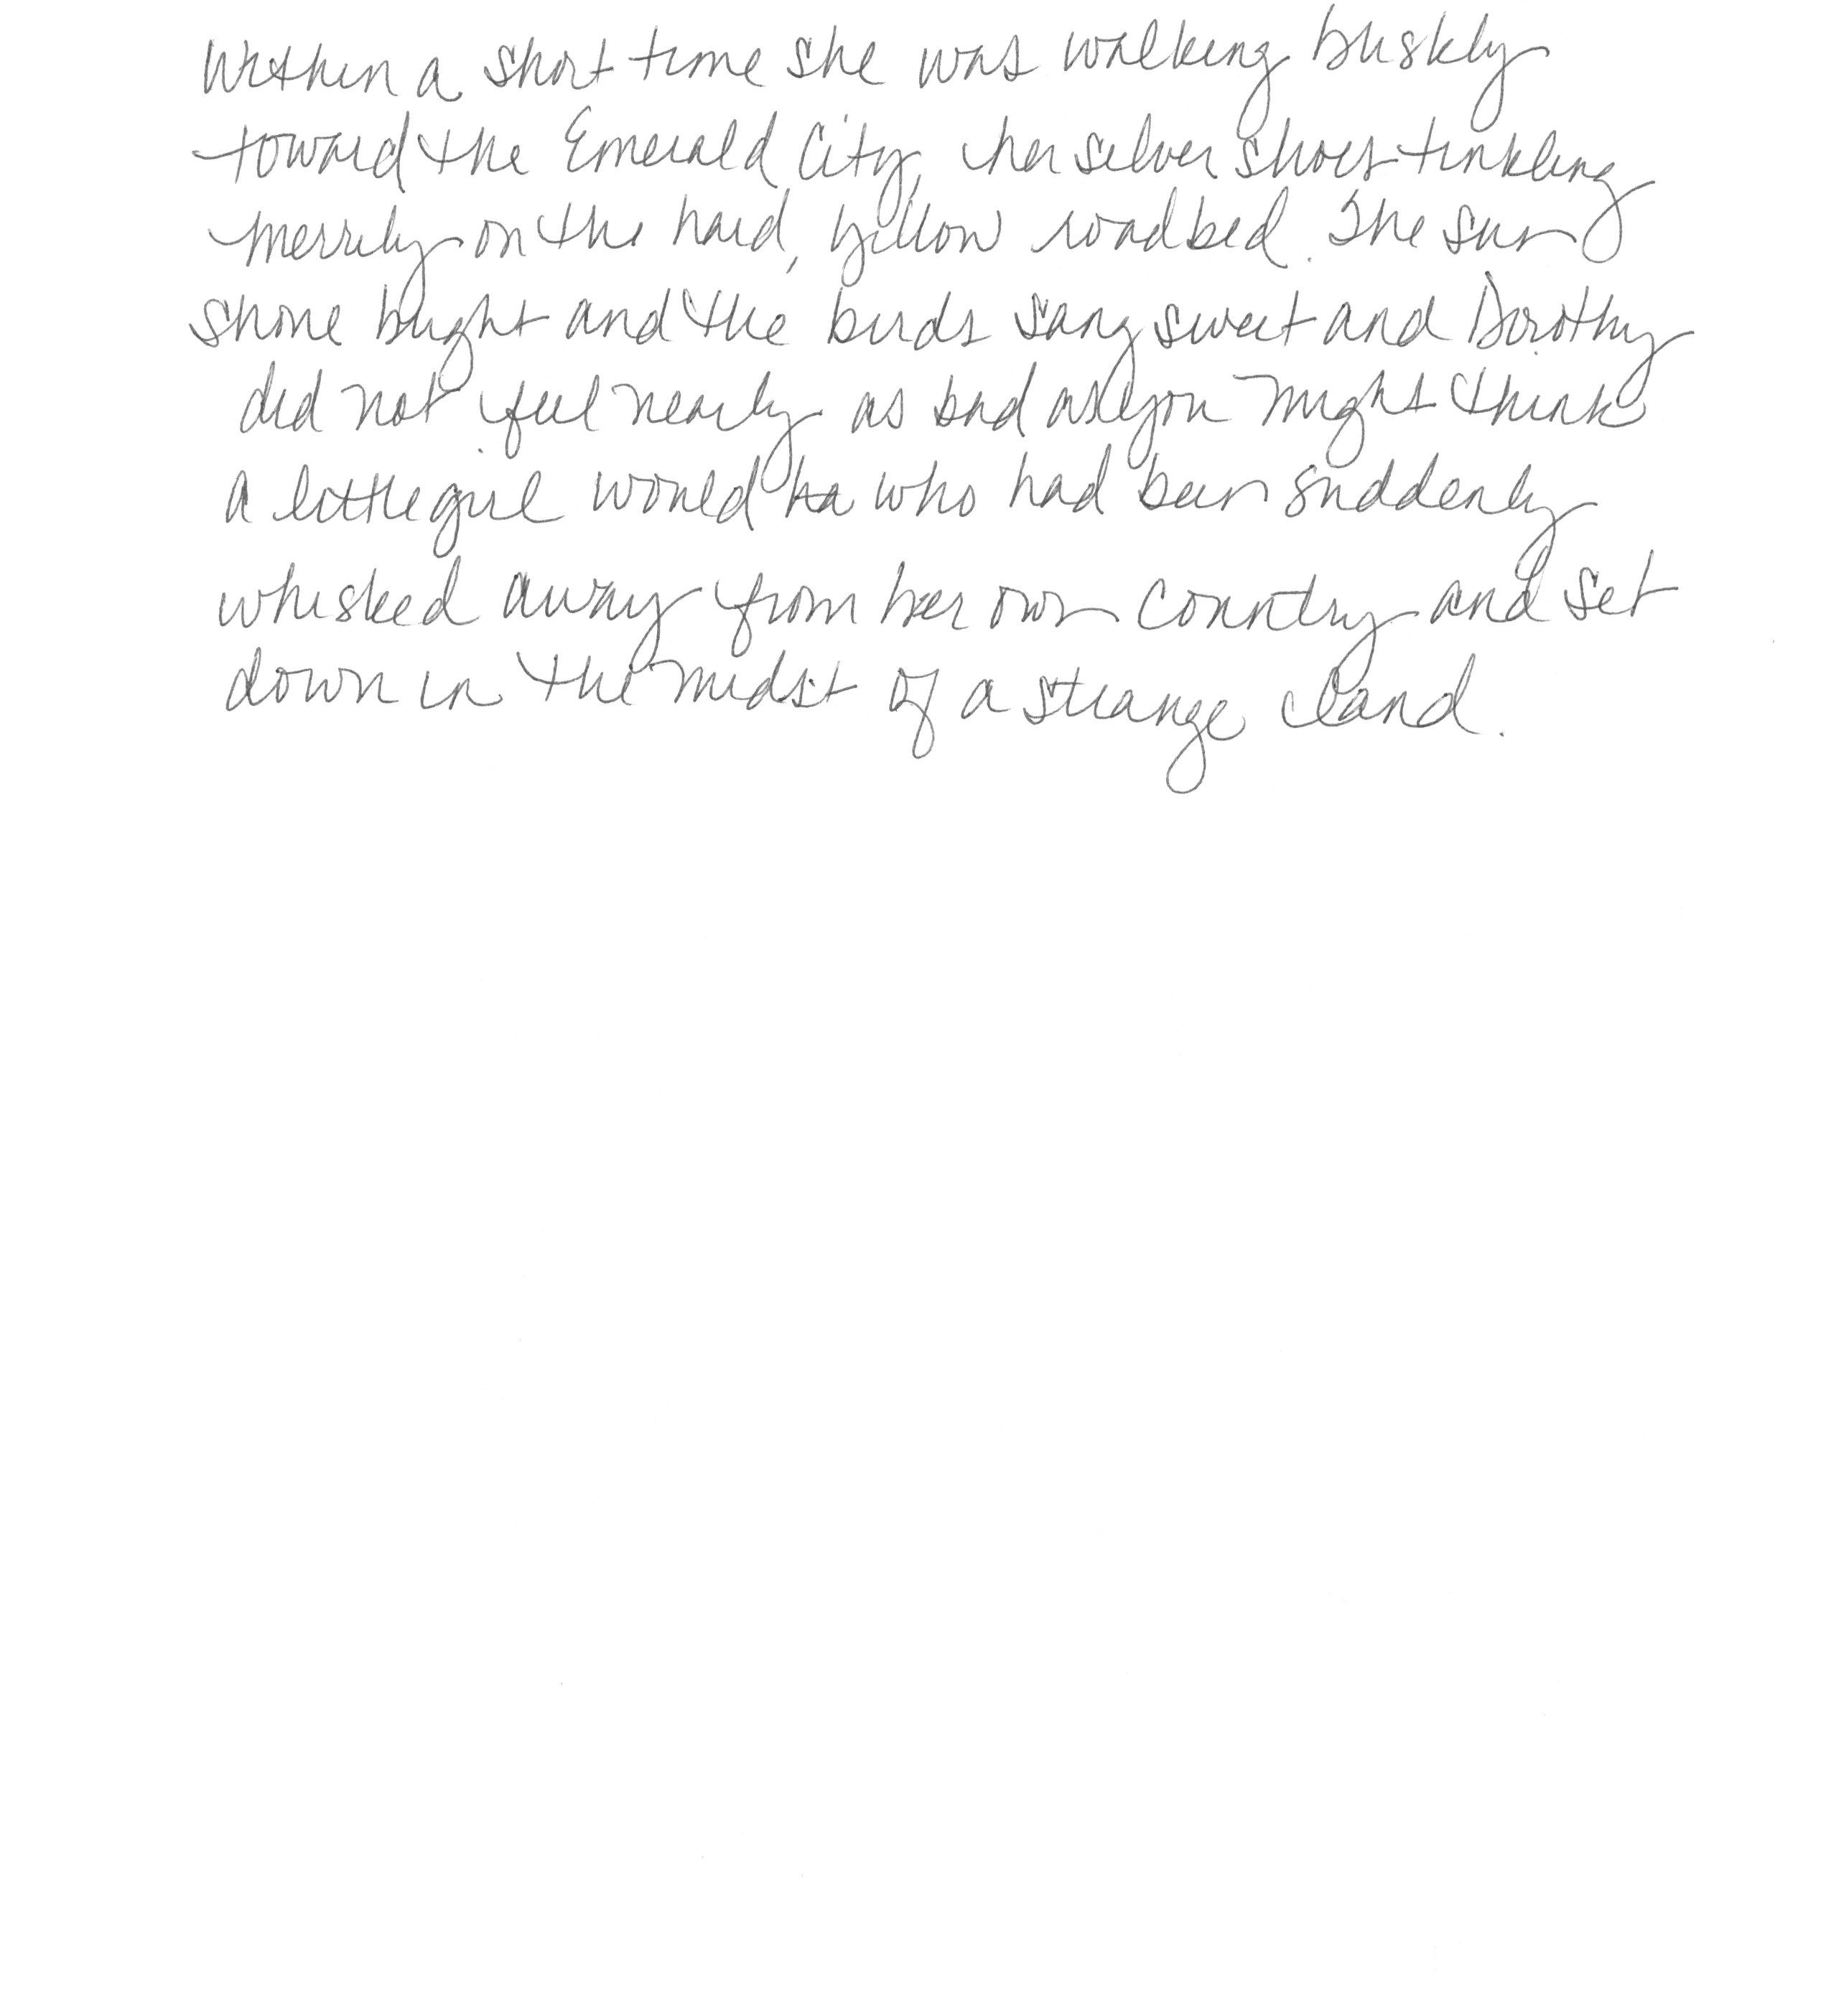 Within a short time she was walking briskly
toward the Emerald City, her silver shoes tinkling
merrily on the hard, yellow roadbed. The sun
shone bright and the birds sang sweet and Dorothy
did not feel nearly as bad as you might think
a little girl would who had been suddenly
whisked away from her own country and set
down in the midst of a strange land.